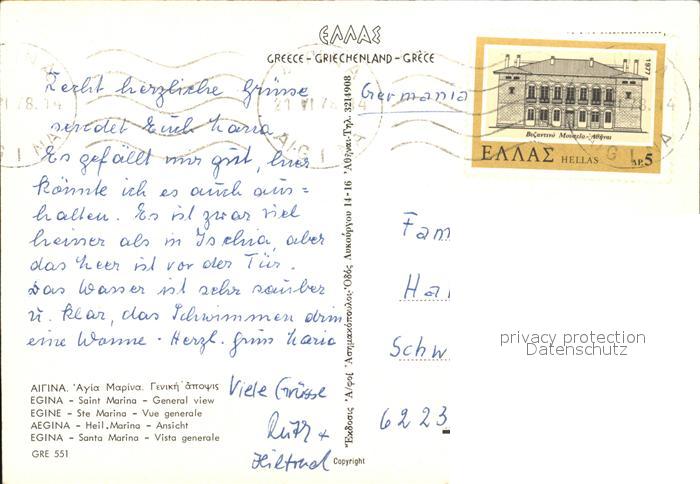 ΕΛΛΑΣ
GREECE - GRIECHENLAND - GRÈCE
Recht herzliche Grüsse
sendet Euch Maria
Es gefällt mir gut, hier
könnte ich es auch aus=
halten. Es ist zwar viel
heisser als in Ischia, aber
das Meer ist vor der Tür.
Das Wasser ist sehr sauber
u. klar, das Schwimmen drin
eine Wonne - Herzl. Gruss Maria
Viele Grüsse
Ruth +
Hiltrud
ΑΙΓΙΝΑ. Ἁγία Μαρίνα. Γενική ἄποψις
EGINA - Saint Marina - General view
EGINE - Ste Marina - Vue generale
AEGINA - Heil. Marina - Ansicht
EGINA - Santa Marina - Vista generale
GRE 551
Copyright
Ἔκδοσις Ἀφοί Ἀσημακόπουλος-Ὁδός Λυκούργου 14-16 Ἀθῆναι-Τηλ. 3214908
Germania
1977
Βυζαντινό Μουσεῖο - Ἀθήναι
ΕΛΛΑΣ HELLAS ΔΡ. 5
21 VI 78.14
Fam
Ha
Schw
6223
privacy protection
Datenschutz